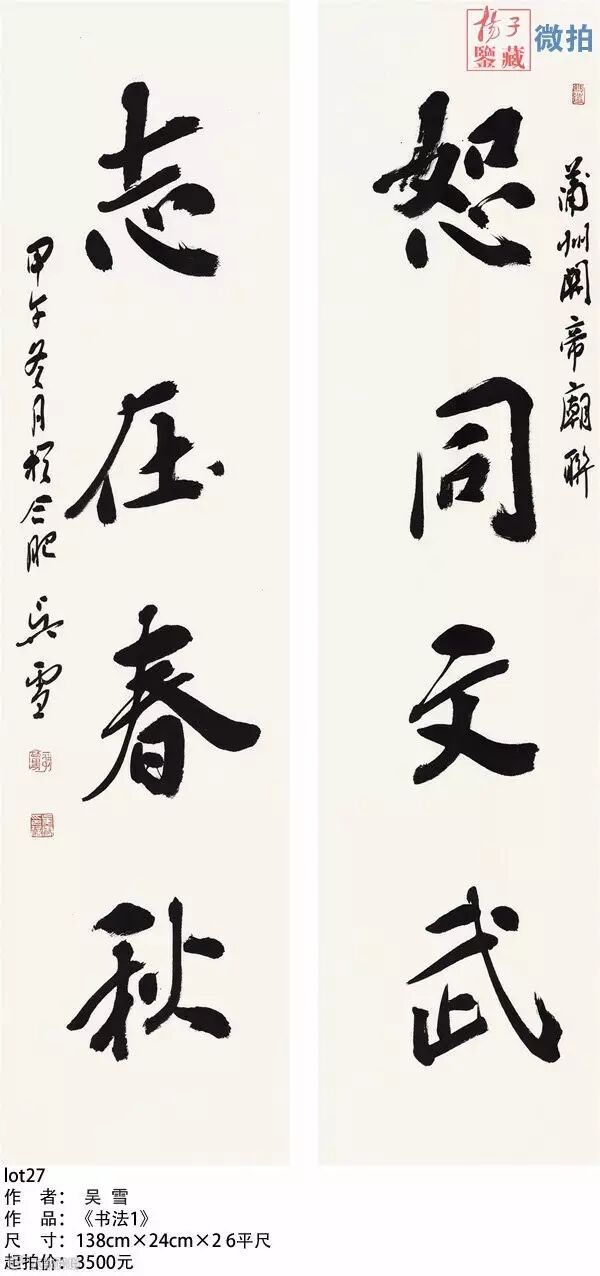 揚子
鑒藏
微拍
蒲州關帝廟聯
恕同文武
志在春秋
甲午冬月於合肥 吳雪
lot27
作 者: 吴 雪
作 品:《书法1》
尺 寸:138cm×24cm×2 6平尺
起拍价:3500元